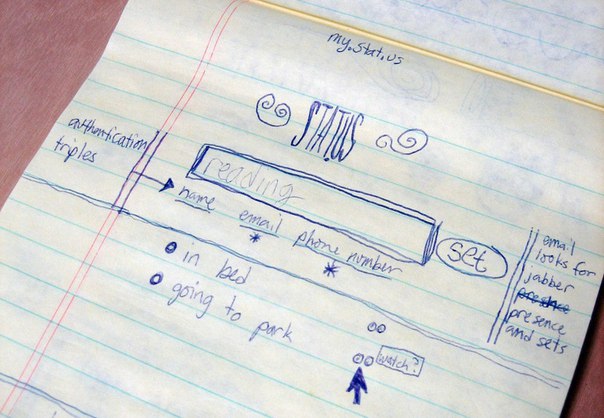 my.stat.us
STATUS
authentication
triples
reading
name email phone number
* *
set
in bed
going to park
watch?
email
looks for
jabber
presence
presence
and sets